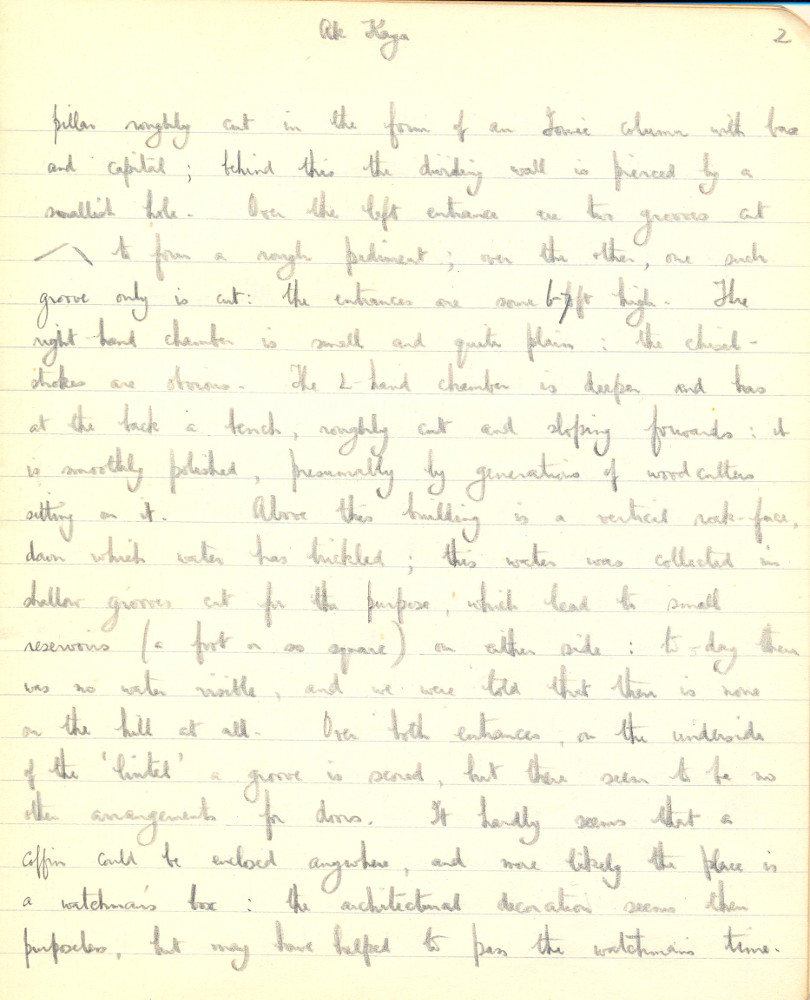 Ak Kaya 2
pillar roughly cut in the form of an Ionic column with base
and capital ; behind this the dividing wall is pierced by a
smallish hole. Over the left entrance are two grooves cut
to form a rough pediment ; over the other, one such
groove only is cut : the entrances are some 6-7 ft high. The
right-hand chamber is small and quite plain : the chisel-
strokes are obvious. The L-hand chamber is deeper and has
at the back a bench, roughly cut and sloping forwards : it
is smoothly polished, presumably by generations of woodcutters
sitting on it. Above this building is a vertical rock-face,
down which water has trickled ; this water was collected in
shallow grooves cut for the purpose, which lead to small
reservoirs (a foot or so square) on either side : to-day there
was no water visible, and we were told that there is none
on the hill at all. Over both entrances, on the underside
of the 'lintel' a groove is scored, but there seem to be no
other arrangements for doors. It hardly seems that a
coffin could be enclosed anywhere, and more likely the place is
a watchman's box : the architectural decoration seems then
purposeless, but may have helped to pass the watchman's time.